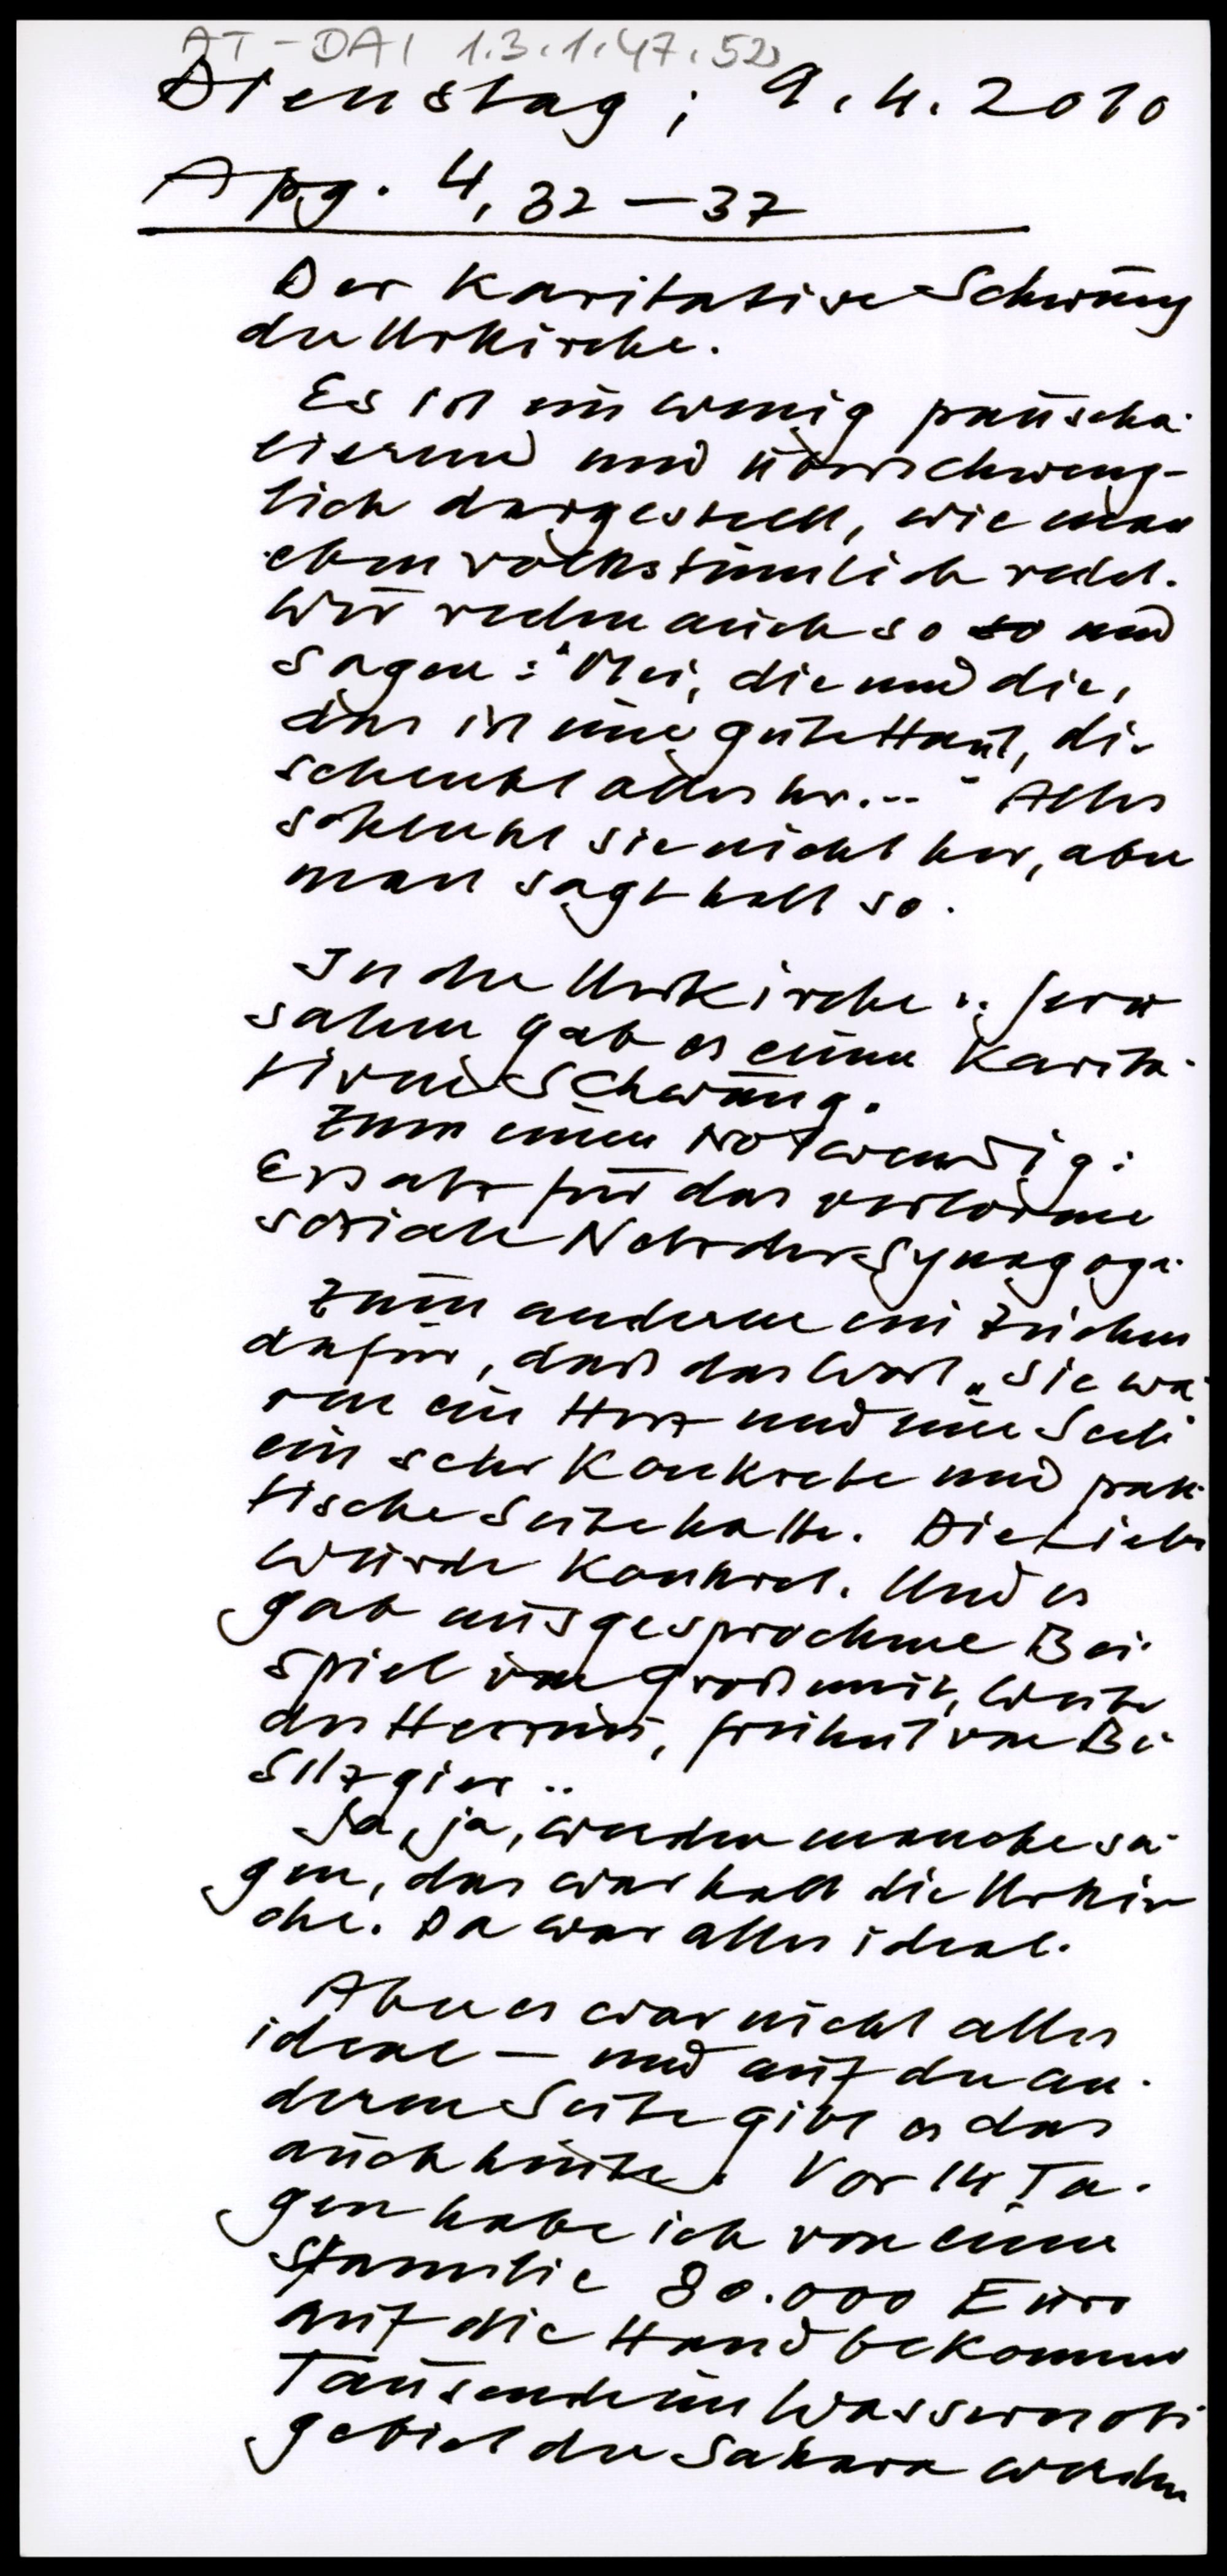 AT-DAI 1.3.1.47.52
Dienstag, 9.4.2010
Apg. 4, 32-37
Der Karitative Schwung
der Urkirche.
Es ist ein wenig pauscha-
lierend und überschweng-
lich dargestellt, wie man
eben volkstümlich redet.
Wir reden auch so so und
sagen: "Mei, die und die,
das ist eine gute Haut, die
schenkt alles her..." Alles
schenkt sie nicht her, aber
man sagt halt so.
In der Urkirche v. Jeru
salem gab es einen Karita-
tiven Schwung.
Zum einen Notwendig:
Ersatz für das verlorene
soziale Netz der Synagoge.
Zum anderen ein Zeichen
dafür, daß das Wort "sie wa-
ren ein Herz und eine Seele
ein sehr Konkrete und prak-
tische Seite hatte. Die Liebe
wurde Konkret. Und es
gab ausgesprochene Bei-
spiel von Großmut, Weite
des Herzens, Freiheit von Be-
sitzgier..
Ja, ja, werden manche sa-
gen, das war halt die Urkir
che. Da war alles ideal.
Aber es war nicht alles
ideal - und auf der an-
deren Seite gibt es das
auch heute. Vor 14 Ta-
gen habe ich von einer
Familie 80.000 Euro
auf die Hand bekommen
Tausende im Wassernot-
gebiet der Sahara werden